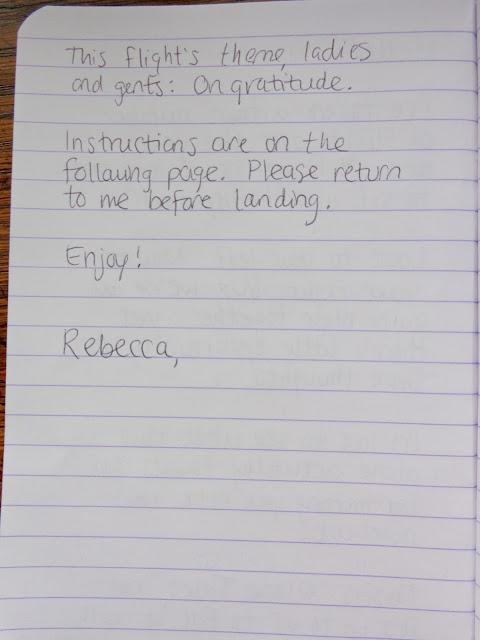 This flight's theme, ladies
and gents: On gratitude.
Instructions are on the
following page. Please return
to me before landing.
Enjoy!
Rebecca,